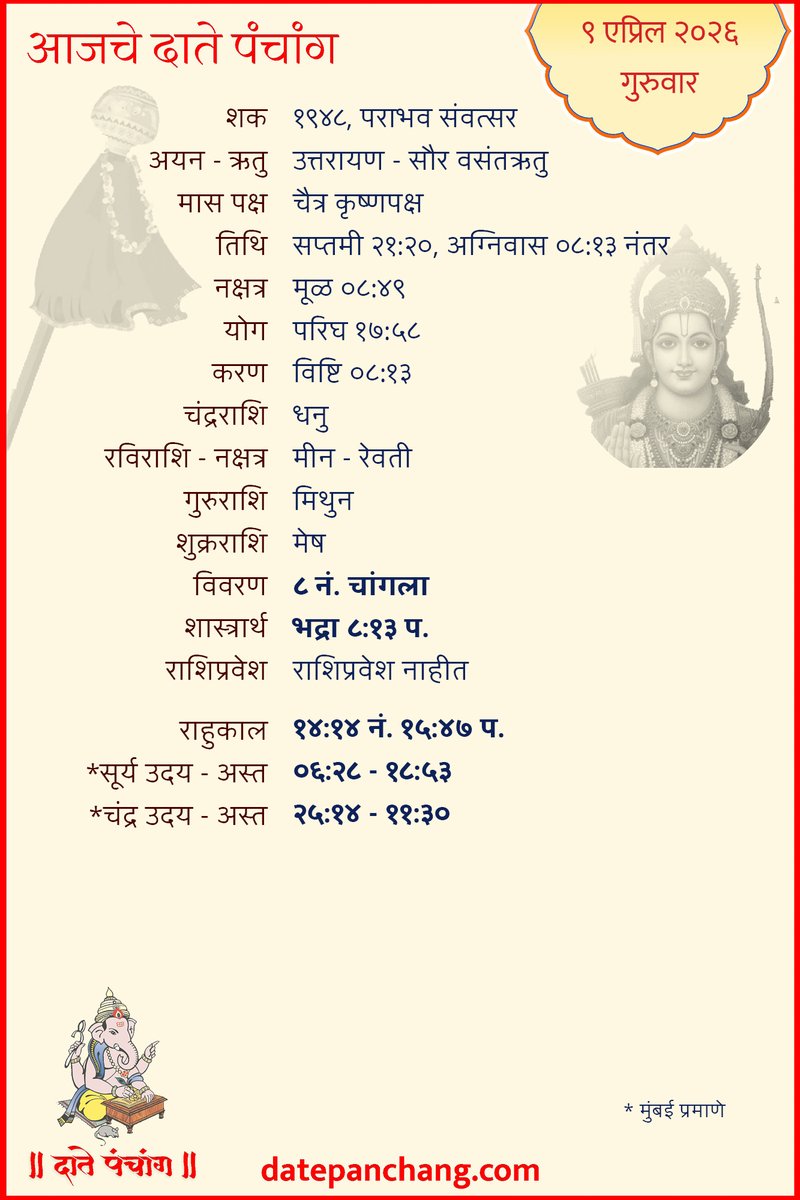 आजचे दाते पंचांग
९ एप्रिल २०२६
गुरुवार
शक १९४८, पराभव संवत्सर
अयन - ऋतु उत्तरायण - सौर वसंतऋतु
मास पक्ष चैत्र कृष्णपक्ष
तिथि सप्तमी २१:२०, अग्निवास ०८:१३ नंतर
नक्षत्र मूळ ०८:४९
योग परिघ १७:५८
करण विष्टि ०८:१३
चंद्रराशि धनु
रविराशि - नक्षत्र मीन - रेवती
गुरुराशि मिथुन
शुक्रराशि मेष
विवरण ८ नं. चांगला
शास्त्रार्थ भद्रा ८:१३ प.
राशिप्रवेश राशिप्रवेश नाहीत
राहुकाल १४:१४ नं. १५:४७ प.
*सूर्य उदय - अस्त ०६:२८ - १८:५३
*चंद्र उदय - अस्त २५:१४ - ११:३०
* मुंबई प्रमाणे
॥ दाते पंचांग ॥
datepanchang.com